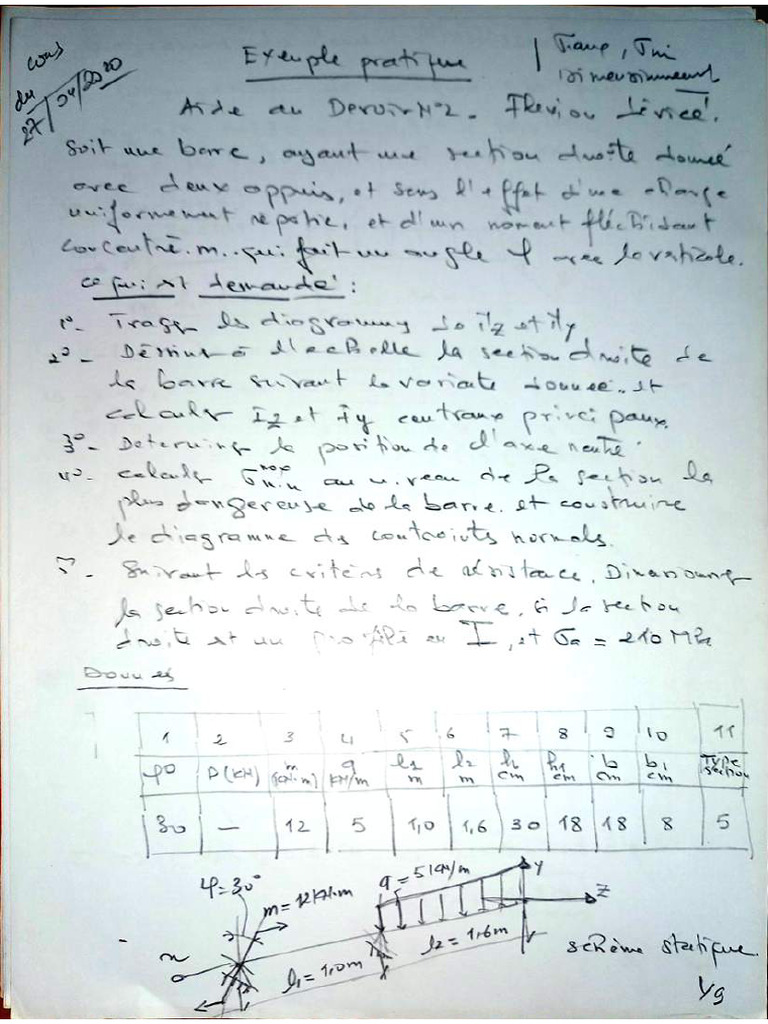 cours
du
27/04/2020
Exemple pratique
Aide au Devoir N°2. Flexion déviée.
Soit une barre, ayant une section droite donnée
avec deux appuis, et sous l'effet d'une charge
uniformement repartie, et d'un moment fléchissant
concentré.m.. qui fait un angle φ avec la verticale.
ce qui est demandé :
1°- Tracer les diagrammes de Mz et My
2°- Déssiner à l'echelle la section droite de
la barre suivant la variante donnée.. et
calculer Iz et Iy centraux principaux.
3°- Determiner la position de l'axe neutre.
4°- calculer σ max min au niveau de la section la
plus dangereuse de la barre. et construire
le diagramme des contraintes normales.
5- Suivant les critères de résistance, Dimensionner
la section droite de la barre, si la section
droite est un profilé en I, et σa = 210 MPa
Données
1 2 3 4 5 6 7 8 9 10 11
φ° P(KN) m (KN.m) q KN/m l1 m l2 m h cm h1 cm b cm b1 cm Type section
30 — 12 5 1,0 1,6 30 18 18 8 5
φ=30° m=12KN.m q=5KN/m y
z
x l1=1,0m l2=1,6m schéma statique
1/9